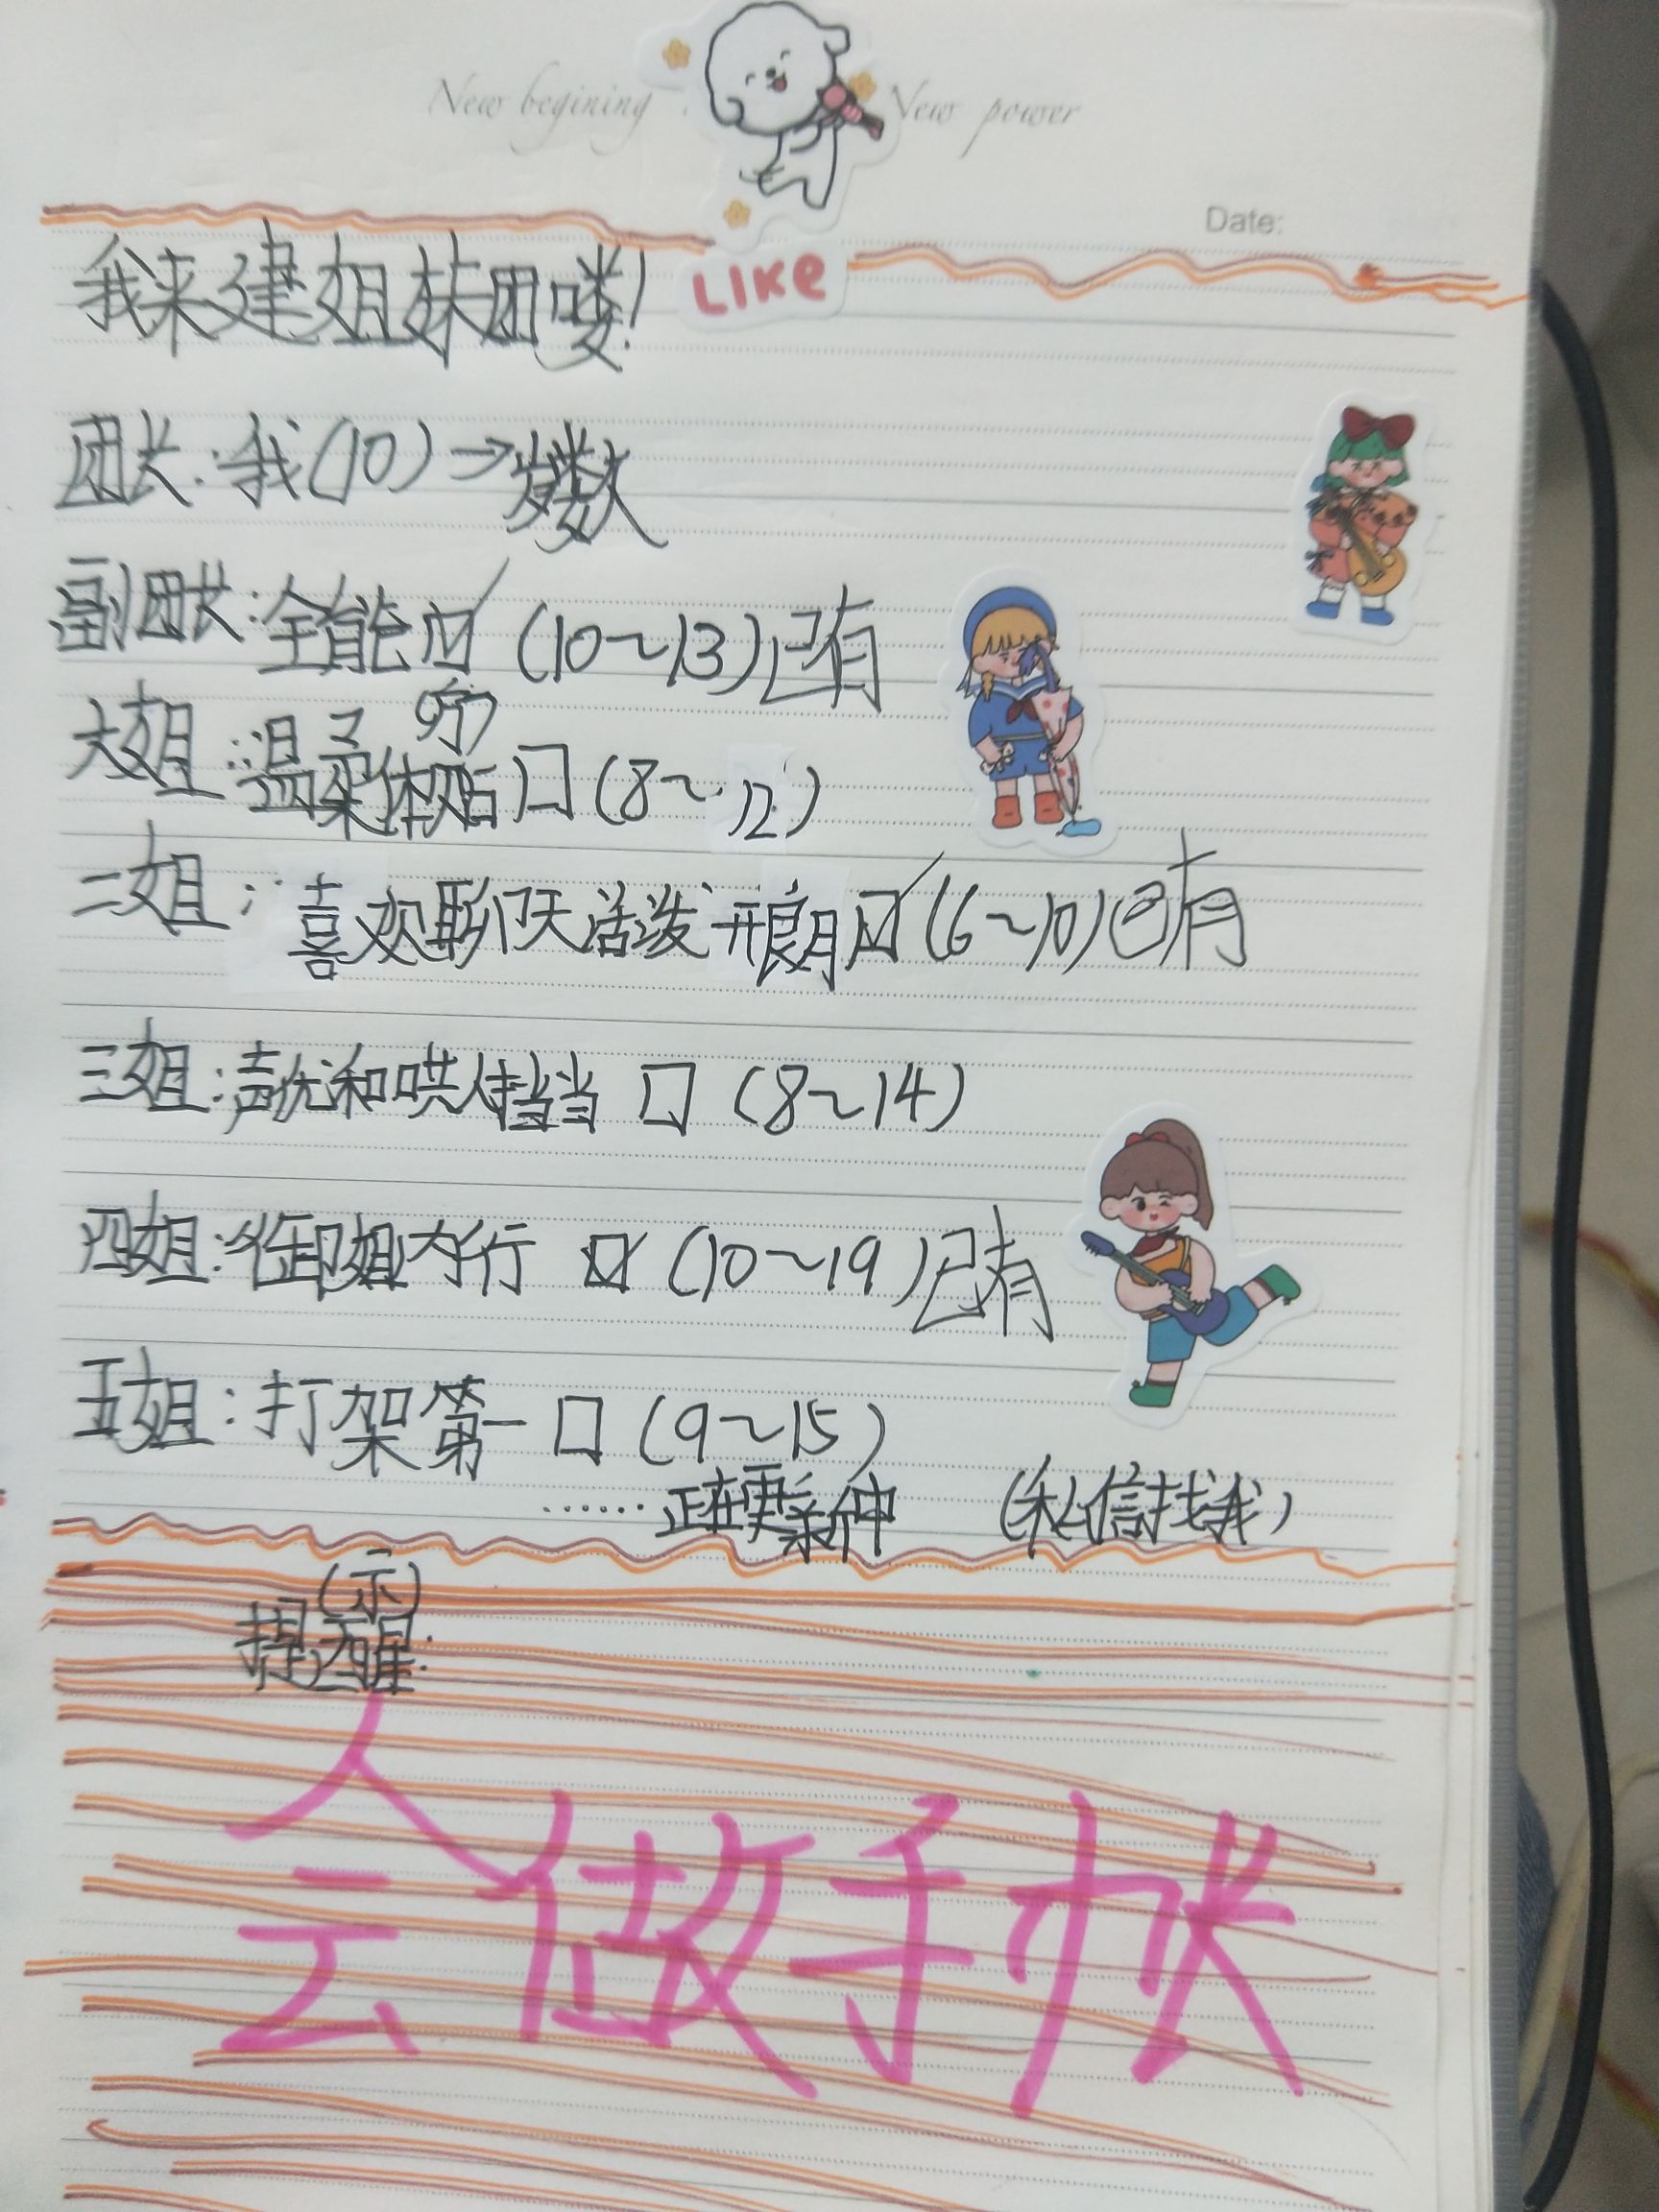 New begining . New power
Date:
LIKE
我来建姐妹团喽!
团长:我(10)→岁数
副团长:全能 ☑ (10~13)已有
大姐:温柔体贴 □ (8~12)
二姐:喜欢聊天活泼开朗 ☑ (6~10)已有
三姐:声优和哄人担当 □ (8~14)
四姐:御姐才行 ☑ (10~19)已有
五姐:打架第一 □ (9~15)
……正在更新中 (私信找我)
(示)
提醒:
会做手帐